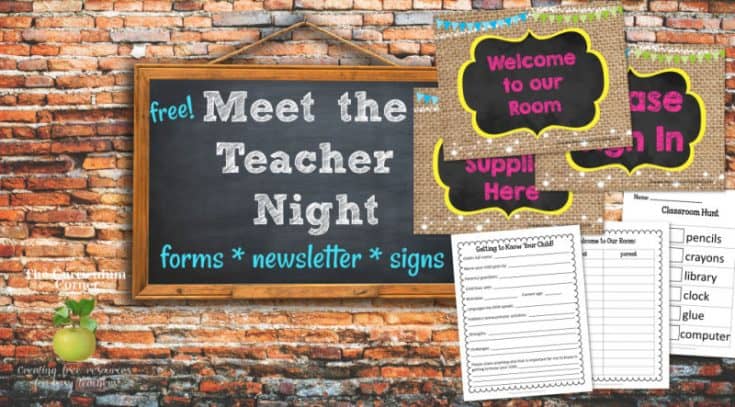 free!
Meet the
Teacher
Night
forms * newsletter * signs
Welcome
to our
Room
ase
n In
Suppli
Here
The Curriculum
Corner
Creating free resources
for busy teachers!
Getting to Know Your Child!
elcome to Our Room:
parent
Name:
Classroom Hunt
pencils
crayons
library
clock
glue
computer